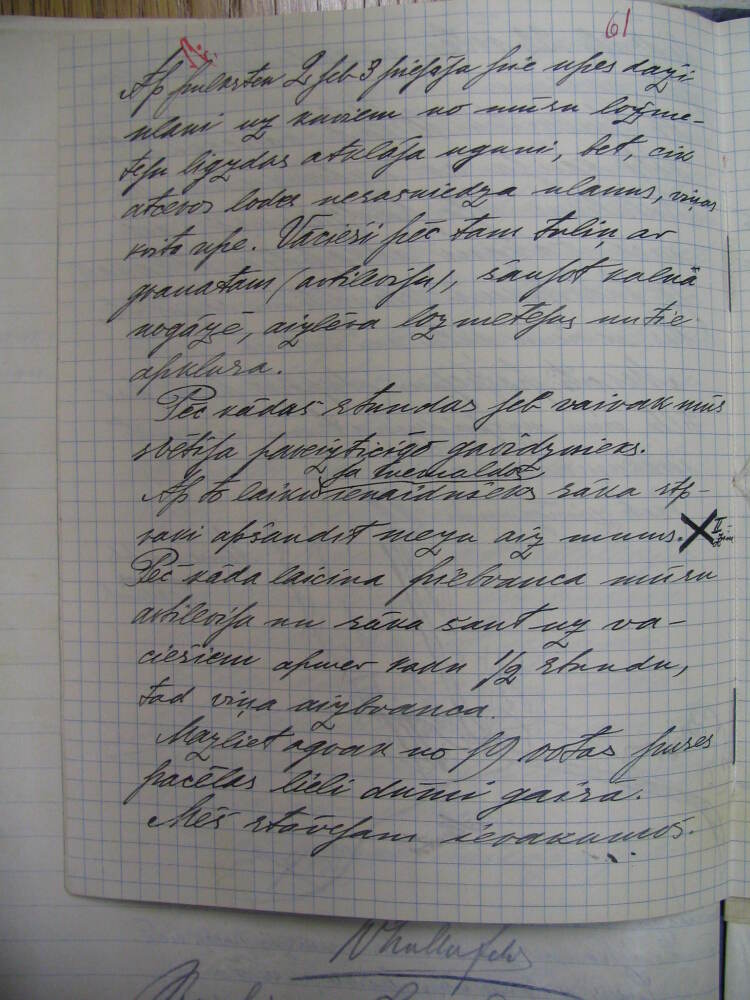 61
Ap pulksten 2 jeb 3 piejāja pie upes daži
ulani uz kuriem no mūsu ložme-
teju ligzdas atklāja uguni, bet, cik
atceros lodes nesasniedza ulanus, viņas
krita upe. Vācieši pēc tam tuliņ ar
granatam (artilerija), šaujot kalnā
nogāzē, aizdēva ložmetejus un tie
apklusa.
Pēc kādas stundas jeb vairak mūs
svētīja garidznieks.
ja nemaldos
Ap to laiku ienaidnieks sāka stp-
raki apšaudīt mežu aiz mums. X II
Pēc kāda laiciņa piebrauca mūsu
artilerija un sāka šaut uz va-
ciešiem apmer kadu 1/2 stundu,
tad viņa aizbrauca.
Mazliet agrak no 19 rotas puses
pacēlas lieli dūmi gaisā.
Mēs stāvejam ierakumos.